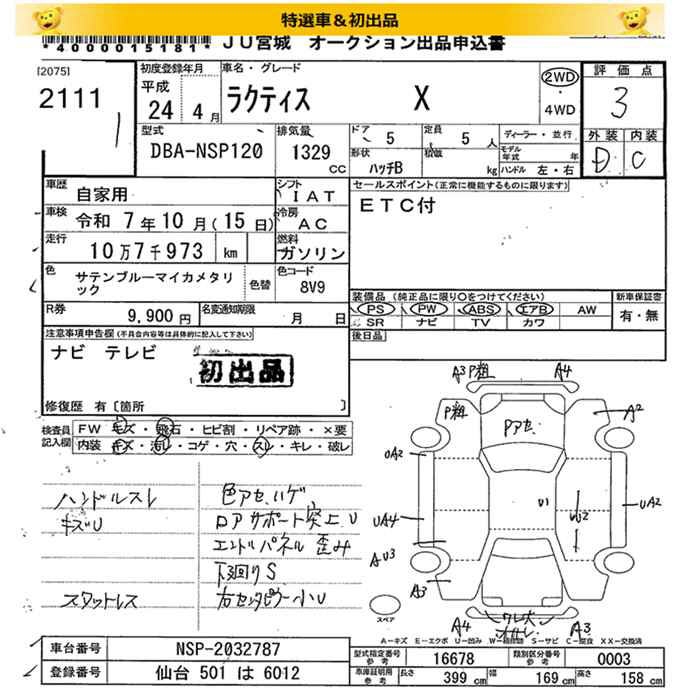 特選車＆初出品
*4000015181*
JU宮城 オークション出品申込書
[2075]
2111
1
初度登録年月
平成
24 4月
車名・グレード
ラクティス X
2WD
・
4WD
評価点
3
型式
DBA-NSP120
排気量
1329
CC
ドア 5
定員 5人
形状 ハッチB
積載 kg
ディーラー・並行
モデル年式 年
ハンドル 左・右
外装 内装
D C
車歴 自家用
シフト IAT
セールスポイント(正常に機能するものに限ります)
ETC付
車検 令和 7年10月(15日)
冷房 AC
走行 10万7千973 km
燃料 ガソリン
色 サテンブルーマイカメタリック
色替
色コード 8V9
R券 9,900円
名変通知期限 月 日
装備品 (純正品に限り○をつけてください)
PS PW ABS エアB AW
SR ナビ TV カワ
新車保証書
有・無
後日品
注意事項申告欄(不具合内容等は具体的に記入して下さい)
ナビ テレビ
初出品
修復歴 有〔箇所 〕
検査員記入欄
FW キズ・飛石・ヒビ割・リペア跡・×要
内装 キズ・汚れ・コゲ・穴・スレ・キレ・破レ
ハンドルスレ
キズU
スタットレス
色アセ ハゲ
ロアサポート突上U
エンドパネル 歪み
下廻りS
右センタピラー小U
A3 P粗 A4
P粗
Pアセ
A2
UA2
UA4
AU3
A3
U1
UA2
A4
A3
スペア
A−キズ E−エクボ U−凹み W−補修跡 S−サビ C−腐食 XX−交換済
車台番号 NSP-2032787
登録番号 仙台 501 は 6012
型式指定番号 参考 16678
類別区分番号 参考 0003
車庫証明用 参考
長さ 399 cm
幅 169 cm
高さ 158 cm